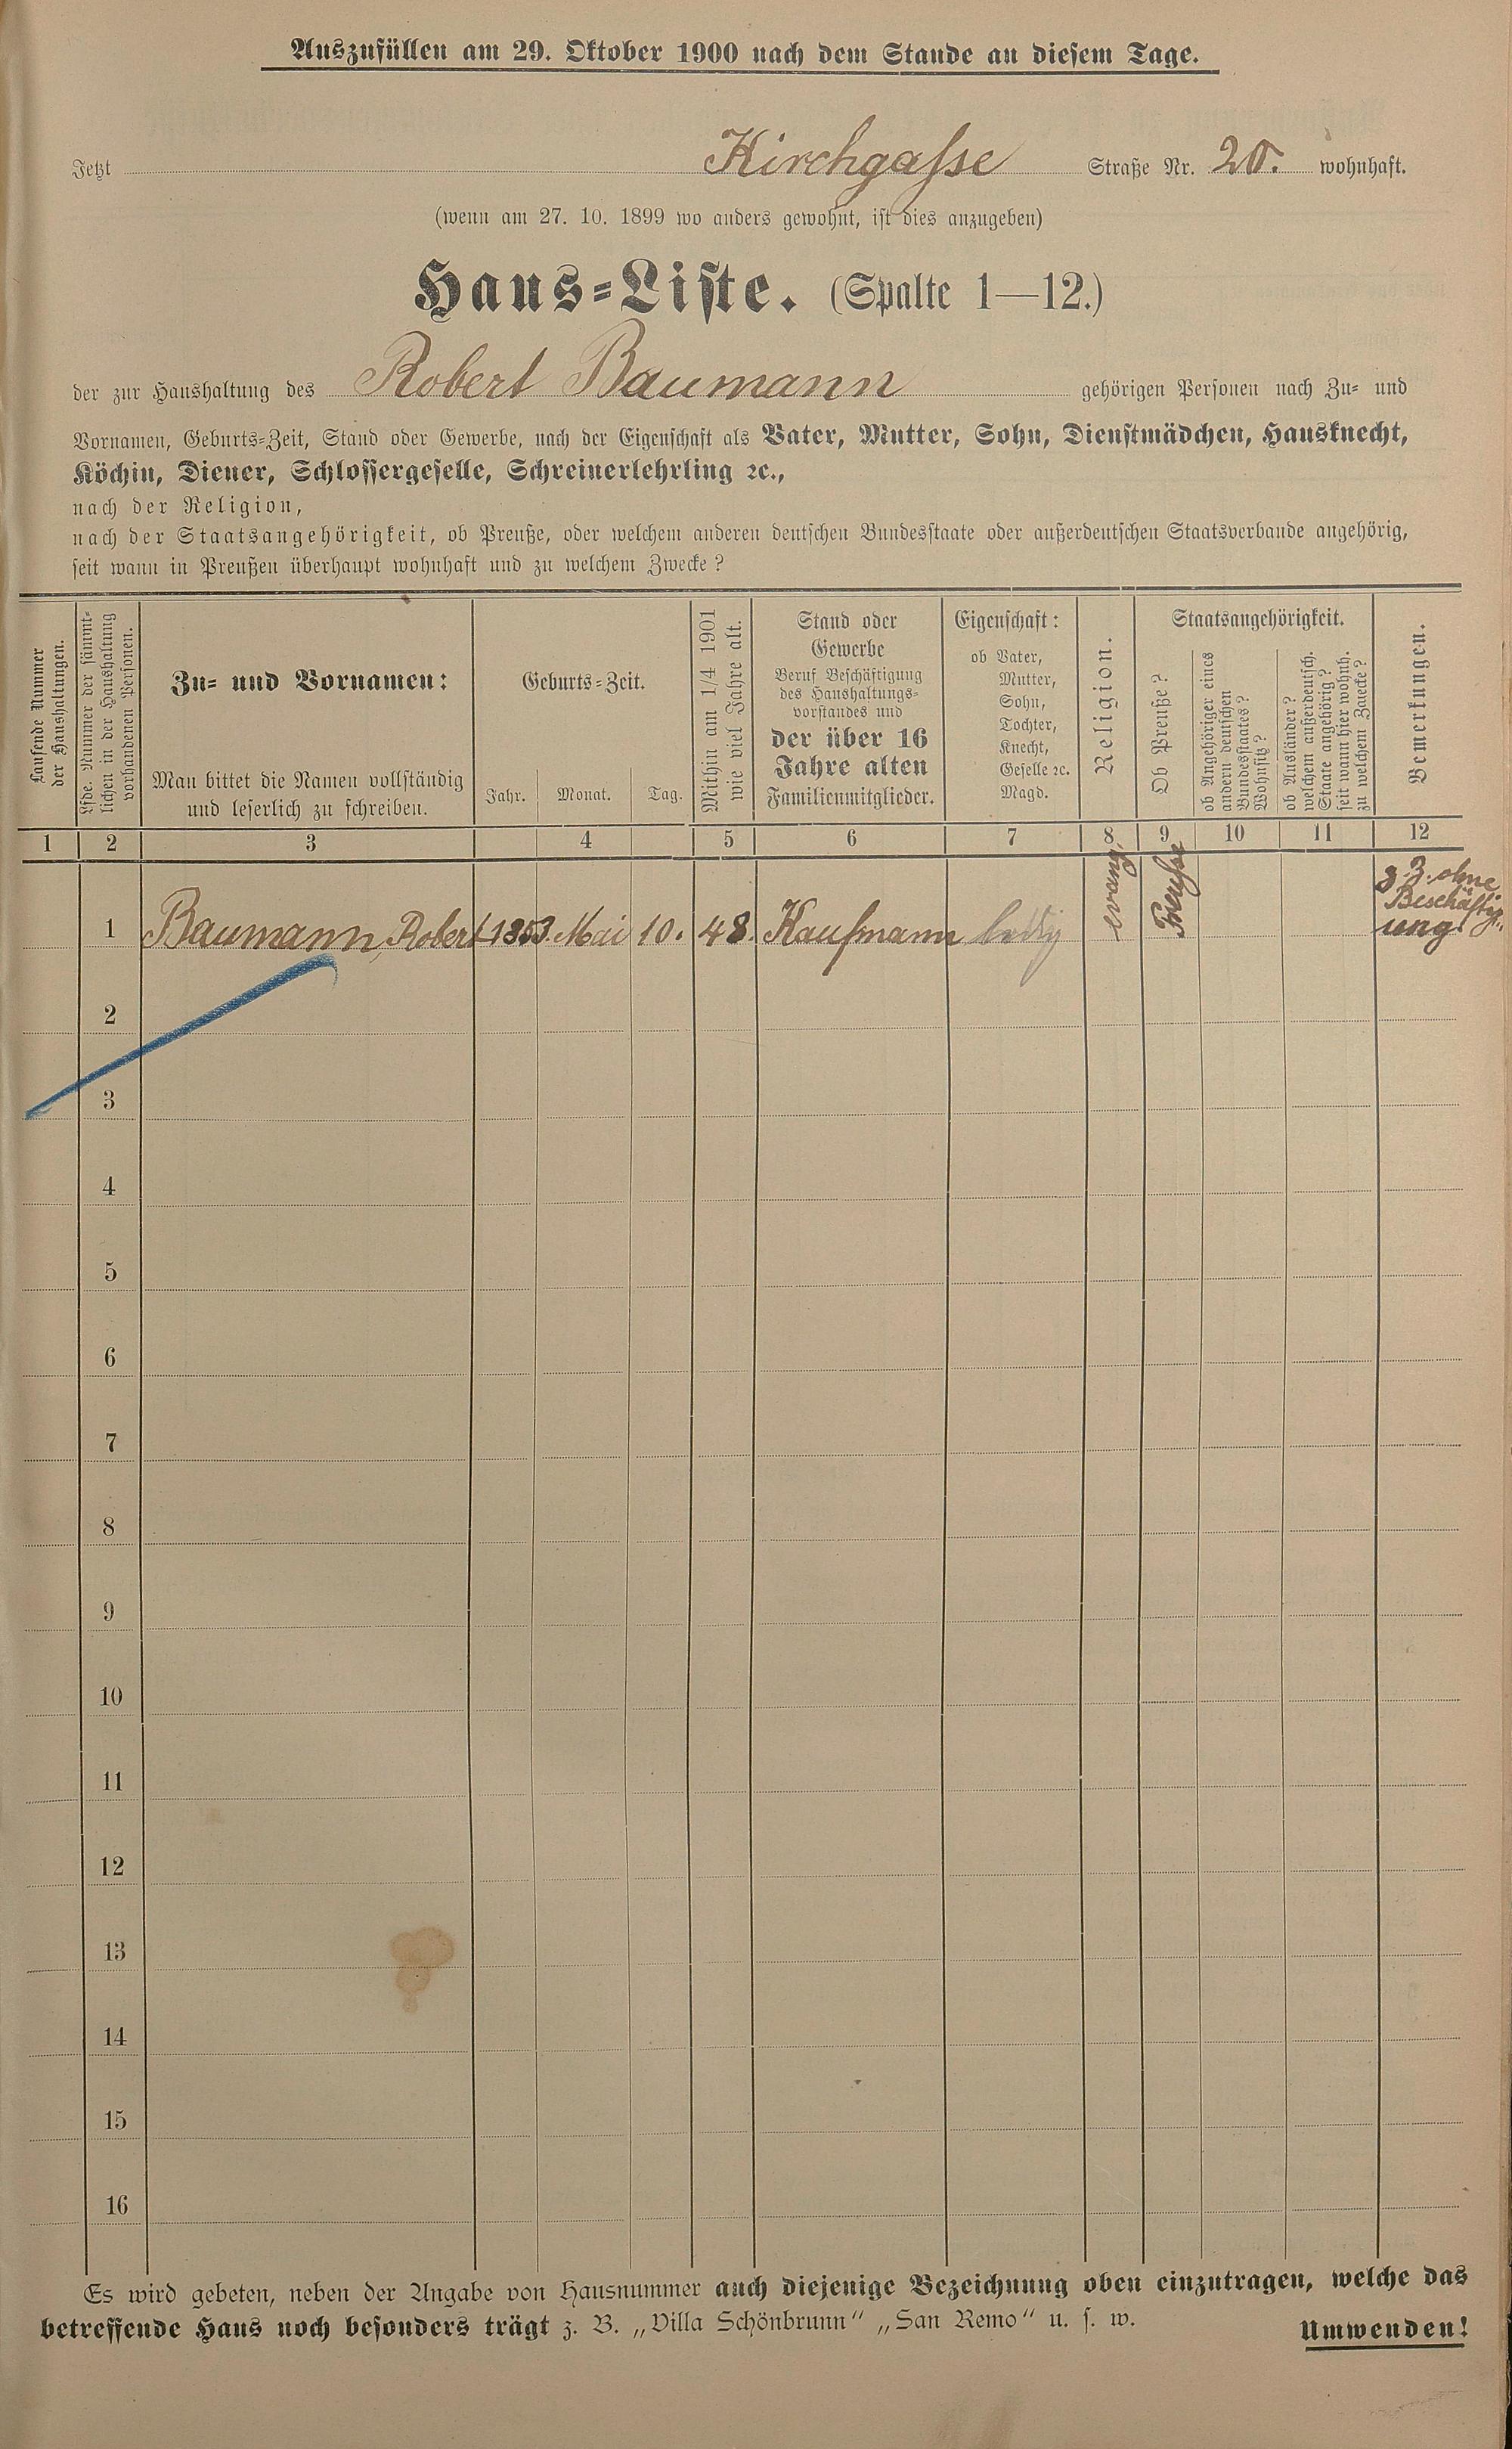 Auszufüllen am 29. Oktober 1900 nach dem Stande an diesem Tage.
Jetzt Kirchgasse Straße Nr. 20. wohnhaft.
(wenn am 27. 10. 1899 wo anders gewohnt, ist dies anzugeben)
Haus-Liste. (Spalte 1—12.)
der zur Haushaltung des Robert Baumann gehörigen Personen nach Zu- und
Vornamen, Geburts-Zeit, Stand oder Gewerbe, nach der Eigenschaft als Vater, Mutter, Sohn, Dienstmädchen, Hausknecht,
Köchin, Diener, Schlossergeselle, Schreinerlehrling ꝛc.,
nach der Religion,
nach der Staatsangehörigkeit, ob Preuße, oder welchem anderen deutschen Bundesstaate oder außerdeutschen Staatsverbande angehörig,
seit wann in Preußen überhaupt wohnhaft und zu welchem Zwecke?
Laufende Nummer
der Haushaltungen.
Lfde. Nummer der sämmt-
lichen in der Haushaltung
vorhandenen Personen.
Zu- und Vornamen:
Man bittet die Namen vollständig
und leserlich zu schreiben.
Geburts-Zeit.
Jahr. Monat. Tag.
Mithin am 1/4 1901
wie viel Jahre alt.
Stand oder
Gewerbe
Beruf Beschäftigung
des Haushaltungs-
vorstandes und
der über 16
Jahre alten
Familienmitglieder.
Eigenschaft:
ob Vater,
Mutter,
Sohn,
Tochter,
Knecht,
Geselle ꝛc.
Magd.
Religion.
Staatsangehörigkeit.
Ob Preuße?
ob Angehöriger eines
andern deutschen
Bundesstaates?
Wohnsitz?
ob Ausländer?
welchem außerdeutsch.
Staate angehörig?
seit wann hier wohnh.
zu welchem Zwecke?
Bemerkungen.
1 2 3 4 5 6 7 8 9 10 11 12
1 Baumann, Robert 1853. Mai 10. 48. Kaufmann ledig evang. Preusse z. Z. ohne
Beschäftig-
ung.
2
3
4
5
6
7
8
9
10
11
12
13
14
15
16
Es wird gebeten, neben der Angabe von Hausnummer auch diejenige Bezeichnung oben einzutragen, welche das
betreffende Haus noch besonders trägt z. B. „Villa Schönbrunn“ „San Remo“ u. s. w.
Umwenden!